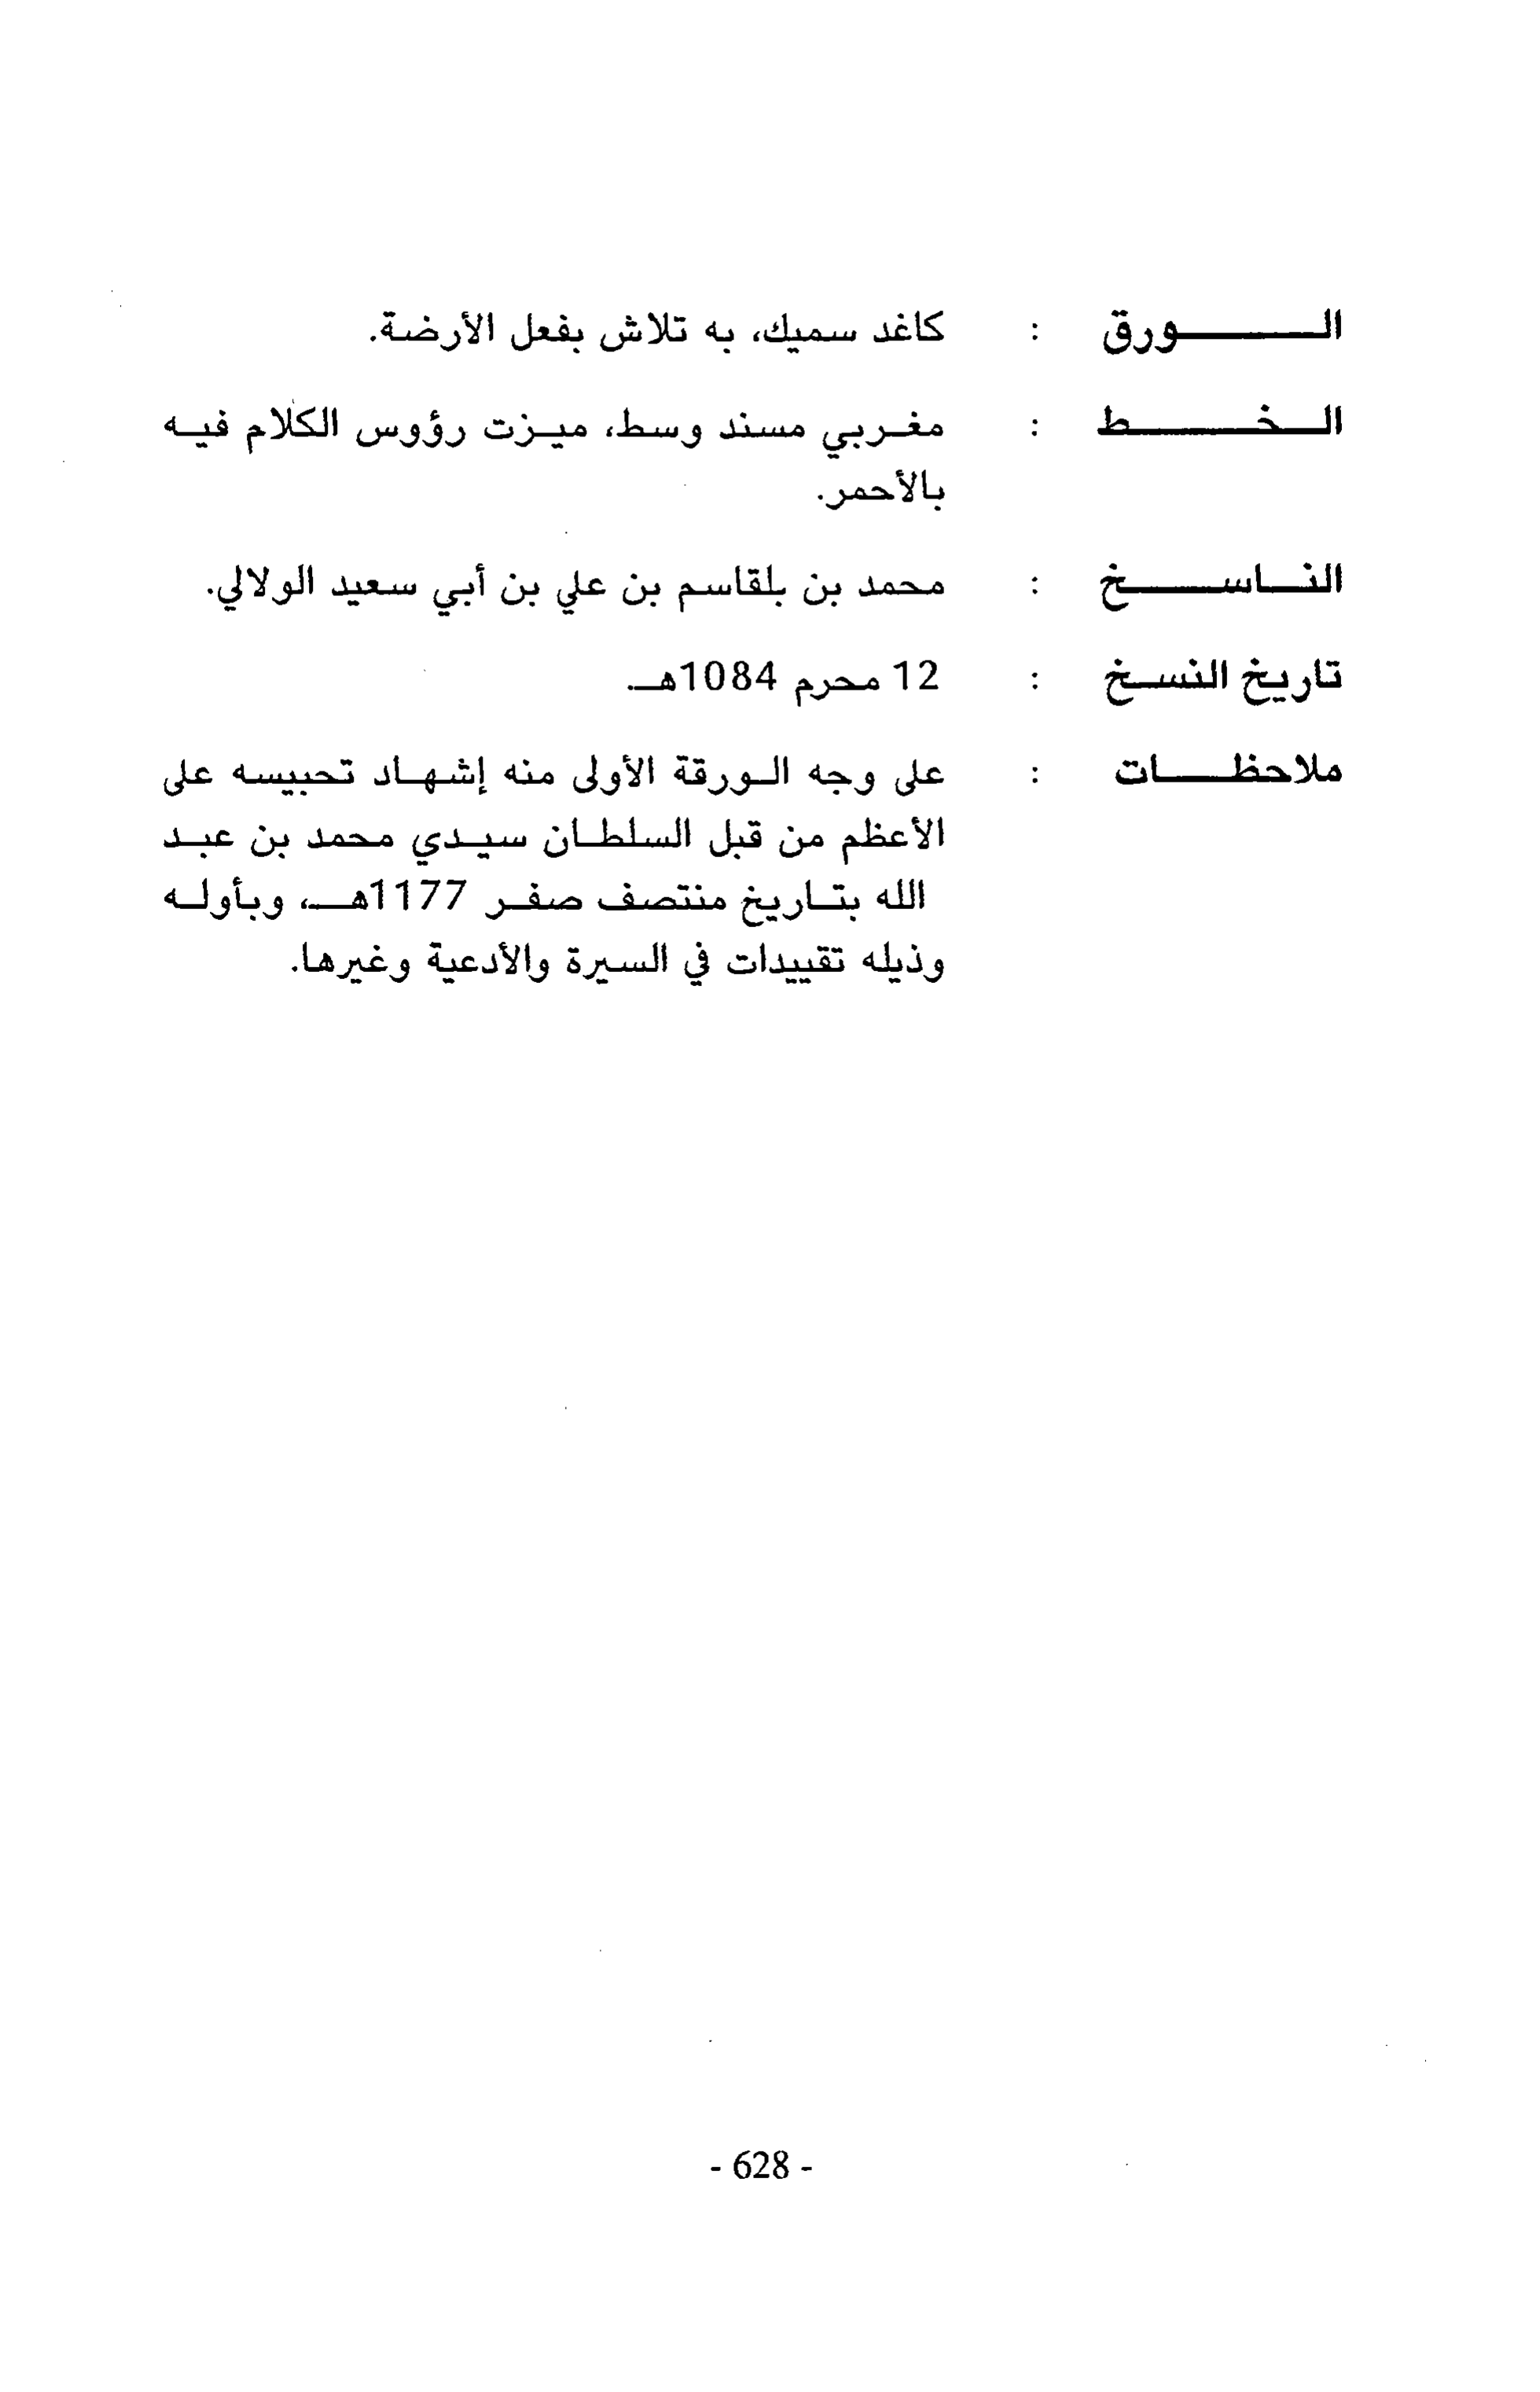 الــــــورق : كاغد سميك، به تلاش بفعل الأرضة.
الــخــــــط : مغربي مسند وسط، ميزت رؤوس الكلام فيه
بالأحمر.
النــاســــخ : محمد بن بلقاسم بن علي بن أبي سعيد الولالي.
تاريخ النسخ : 12 محرم 1084هـ.
ملاحظـــات : على وجه الورقة الأولى منه إشهاد تحبيسه على
الأعظم من قبل السلطان سيدي محمد بن عبد
الله بتاريخ منتصف صفر 1177هـ، وبأوله
وذيله تقييدات في السيرة والأدعية وغيرها.
- 628 -